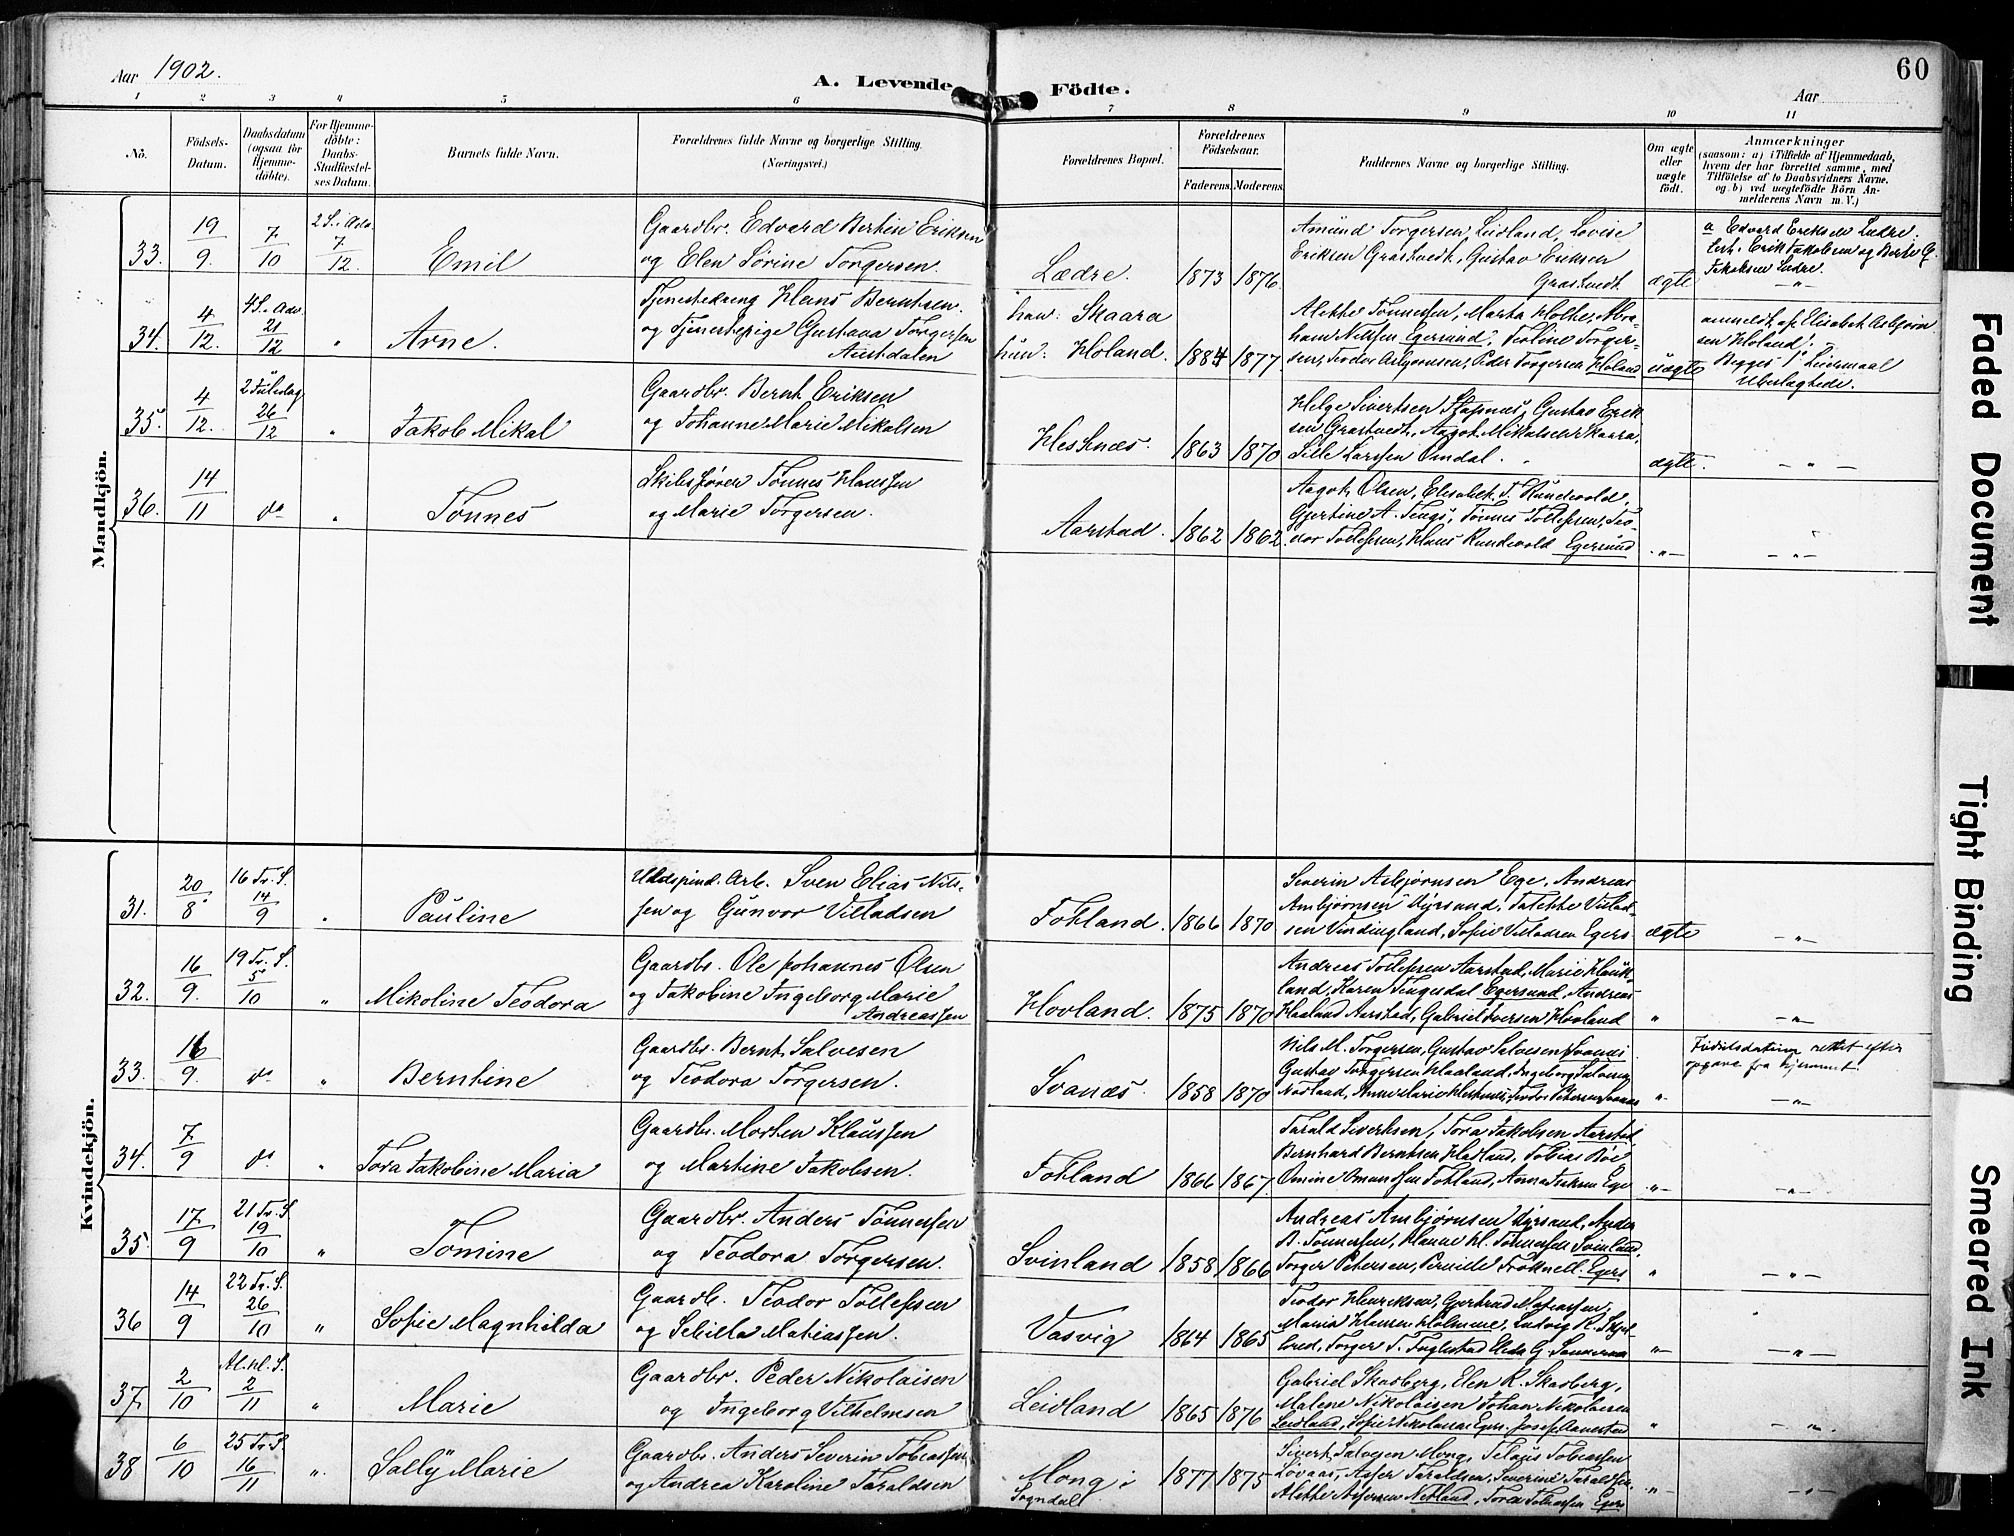 Aar 1902.
A. Levende Födte.
Aar
60
1 2 3 4 5 6 7 8 9 10 11
No.
Födsels-Datum.
Daabsdatum (ogsaa for Hjemme-döbte).
For Hjemme-döbte: Daabs-Stadfæstel-ses Datum.
Barnets fulde Navn.
Forældrenes fulde Navne og borgerlige Stilling.
(Næringsvei.)
Forældrenes Bopæl.
Forældrenes Födselsaar.
Faderens. Moderens.
Faddernes Navne og borgerlige Stilling.
Om ægte eller uægte födt.
Anmærkninger
(saasom: a) i Tilfælde af Hjemmedaab, hvem der har forrettet samme, med Tilföielse af to Daabsvidners Navne, og b) ved uægtefödte Börn An-melderens Navn m. V.)
Mandkjön.
33. 19/9 7/10 2 S. i Adv. 7/12 Emil
Gaardbr. Edvard Bertin Eriksen
og Elen Sørine Torgersen.
Lædre. 1873 1876
Amund Torgersen Leidland, Lovise
Eriksen Grastvedt, Gustav Eriksen
Grastvedt
ægte
a Edvard Eriksen Lædre.
Test. Erik Jakobsen og Berte G.
Jakobsen Lædre.
34. 4/12. 4 S. i Adv. 21/12 " Arne.
Tjenestedreng Hans Berntsen
og Tjenestepige Gustava Torgersen
Austdalen
han: Skaara
hun: Holand. 1884 1877
Alette Tønnessen, Marta Holthe, Abra-
ham Nilssen Egersund, Teoline Torger-
sen, Teodor Asbjørnsen, Peder Torgersen Holand
uægte
anmeldt af Elisabet Asbjørn
sen Holand.
Begges 1ste Leiermaal
Ubeslægtede.
35. 4/12. 2 Juledag 26/12 " Jakob Mikal
Gaardbr. Bernt Eriksen
og Johanne Marie Mikalsen
Hestnæs. 1863 1870
Helge Sivertsen Stapnes, Gustav Erik
sen Grastvedt, Aagot Mikalsen Skaara,
Sille Larssen Omdal.
ægte. - " -
36. 14/11 do " Tønnes
Skibsfører Tønnes Klaussen
og Marie Torgersen.
Aarstad. 1862 1862.
Aagot Olsen, Elisabet T. Hundvold,
Gjertine A. Tengs, Tønnes Tollefsen, Teo-
dor Tollefsen, Klaus Rundevold Egersund
- " - - " -
Kvindekjön.
31. 20/8 16 Tr. S. 14/9 " Pauline
Uldspind. Arb. Sven Elias Nils-
sen og Gunvor Villadsen
Fotland. 1866 1870
Severin Asbjørnsen Ege, Andreas
Ambjørnsen Myrsund, Talette Villad-
sen Vindingland, Sofie Villadsen Egers
ægte - " -
32. 16/9. 19 Tr. S. 5/10 " Mikoline Teodora
Gaardbr. Ole Johannes Olsen
og Jakobine Ingeborg Marie
Andreassen
Hovland. 1875 1870
Andreas Tollefsen Aarstad, Marie Hauk
land, Karen Tengesdal Egersund, Andreas
Haaland Aarstad, Gabriel Iversen Hovland
" - " -
33. 16/9. do " Berntine
Gaardbr. Bernt Salvesen
og Teodora Torgersen.
Svanæs. 1858 1870
Nils M. Torgersen, Gustav Salvesen Svanæs
Gustav Torgersen Haaland, Ingeborg Salvesen
Nodland, Anne Marie Hestnes, Teodor Petersen Svanæs
" Fødselsdatum rettet efter
opgave fra hjemmet.
- " -
34. 7/9 do " Tora Jakobine Maria
Gaardbr. Morten Klaussen
og Martine Jakobsen.
Fotland 1866 1867.
Tarald Sivertsen, Tora Jakobsen Aarstad,
Bernhard Berntsen Hadland, Tobias Bøe
Omine Omundsen Fotland, Anna Isaksen Ege
- " - - " -
35. 17/9 21 Tr. S. 19/10 " Tomine
Gaardbr. Anders Tønnessen
og Teodora Torgersen.
Svinland 1858 1866
Andreas Ambjørnsen Myrsund, Anders
B. Tønnessen, Hanne H. Tønnessen Svinland,
Torger Petersen, Pernille Trøknell. Egers
" - " -
36 14/9 22 Tr. S. 26/10 " Sofie Magnhilda
Gaardb. Teodor Tollefsen
og Sebilla Matiassen.
Vasvig 1864 1865
Teodor Henriksen, Gertrud Matiassen,
Maria Hansen Holmene, Ludvig R. Skjel
bred, Torger T. Fuglestad Elida G.
- " - - " -
37. 2/10 Al. Hl. S. 2/11 " Marie
Gaardbr. Peder Nikolaisen
og Ingeborg Vilhelmsen
Leidland 1865 1876
Gabriel Skadberg, Elen K. Skadberg,
Malene Nikolaisen Johan Nikolaisen
Leidland, Sofie Nikolaisen Egers. Josef Aanestad
" - " -
38 6/10 25 Tr. S. 16/11 " Sally Marie
Gaardbr. Anders Severin Tobiassen
og Andrea Karoline Taraldsen
Mong i
Sogndal 1877 1875
Sivert Salvesen Mong, Telaus Tobiassen
Løvaas, Asser Taraldsen, Severine Taraldsen,
Alette Assersen Netland, Tora Tobiassen Egers
- " - - " -
Faded Document
Tight Binding
Smeared Ink